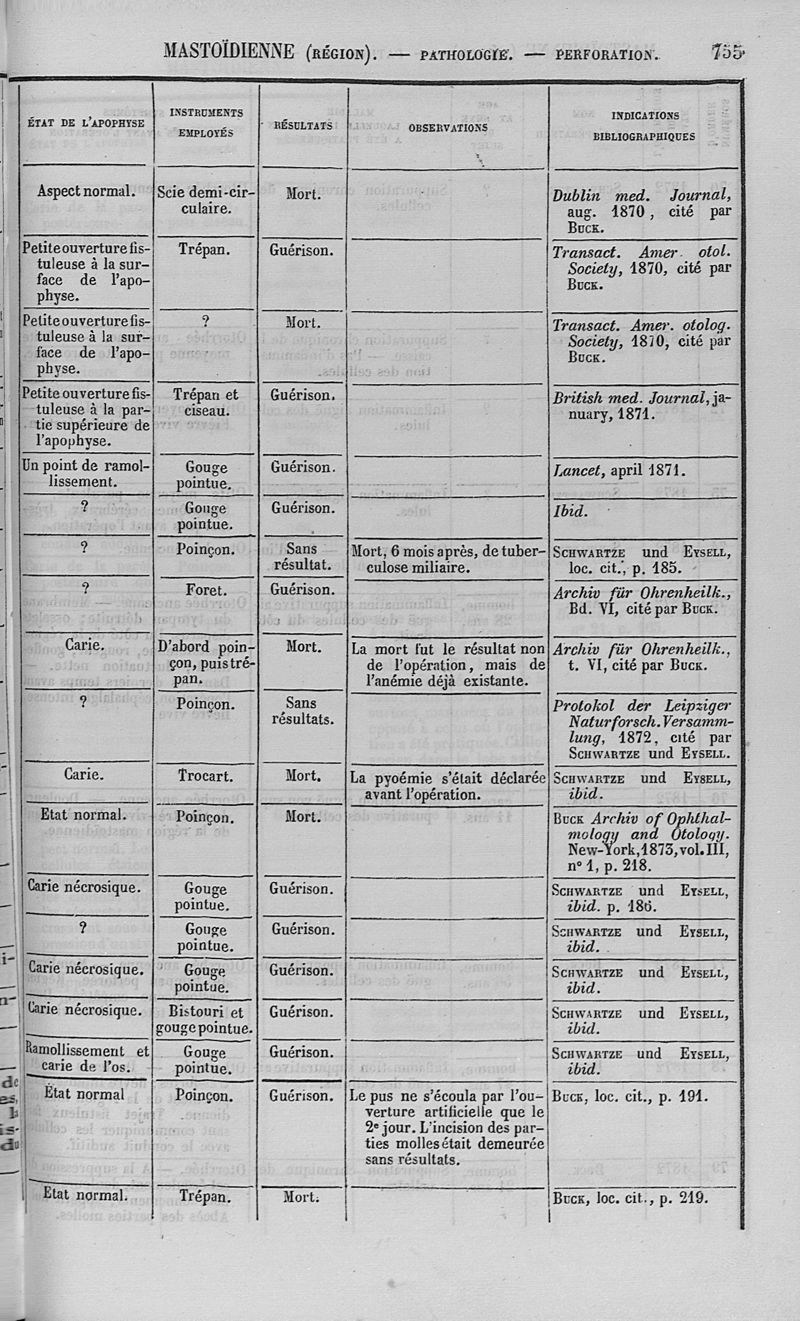 MASTOÏDIENNE (RÉGION). — PATHOLOGIE. — PERFORATION. 755
ÉTAT DE L'APOPHYSE
INSTRUMENTS
EMPLOYÉS
RÉSULTATS
OBSERVATIONS
INDICATIONS
BIBLIOGRAPHIQUES
Aspect normal.
Scie demi-cir-
culaire.
Mort.
Dublin med. Journal,
aug. 1870, cité par
BUCK.
Petite ouverture fis-
tuleuse à la sur-
face de l'apo-
physe.
Trépan.
Guérison.
Transact. Amer. otol.
Society, 1870, cité par
BUCK.
Petite ouverture fis-
tuleuse à la sur-
face de l'apo-
physe.
?
Mort.
Transact. Amer. otolog.
Society, 1870, cité par
BUCK.
Petite ouverture fis-
tuleuse à la par-
tie supérieure de
l'apophyse.
Trépan et
ciseau.
Guérison.
British med. Journal, ja-
nuary, 1871.
Un point de ramol-
lissement.
Gouge
pointue.
Guérison.
Lancet, april 1871.
?
Gouge
pointue.
Guérison.
Ibid.
?
Poinçon.
Sans
résultat.
Mort, 6 mois après, de tuber-
culose miliaire.
SCHWARTZE und EYSELL,
loc. cit., p. 185.
?
Foret.
Guérison.
Archiv für Ohrenheilk.,
Bd. VI, cité par BUCK.
Carie.
D'abord poin-
çon, puis tré-
pan.
Mort.
La mort fut le résultat non
de l'opération, mais de
l'anémie déjà existante.
Archiv für Ohrenheilk.,
t. VI, cité par BUCK.
?
Poinçon.
Sans
résultats.
Protokol der Leipziger
Naturforsch. Versamm-
lung, 1872, cité par
SCHWARTZE und EYSELL.
Carie.
Trocart.
Mort.
La pyoémie s'était déclarée
avant l'opération.
SCHWARTZE und EYSELL,
ibid.
Etat normal.
Poinçon.
Mort.
BUCK Archiv of Ophthal-
mology and Otology.
New-York, 1873, vol. III,
n° 1, p. 218.
Carie nécrosique.
Gouge
pointue.
Guérison.
SCHWARTZE und EYSELL,
ibid. p. 186.
?
Gouge
pointue.
Guérison.
SCHWARTZE und EYSELL,
ibid.
Carie nécrosique.
Gouge
pointue.
Guérison.
SCHWARTZE und EYSELL,
ibid.
Carie nécrosique.
Bistouri et
gouge pointue.
Guérison.
SCHWARTZE und EYSELL,
ibid.
Ramollissement et
carie de l'os.
Gouge
pointue.
Guérison.
SCHWARTZE und EYSELL,
ibid.
État normal
Poinçon.
Guérison.
Le pus ne s'écoula par l'ou-
verture artificielle que le
2e jour. L'incision des par-
ties molles était demeurée
sans résultats.
BUCK, loc. cit., p. 191.
Etat normal.
Trépan.
Mort.
BUCK, loc. cit., p. 219.